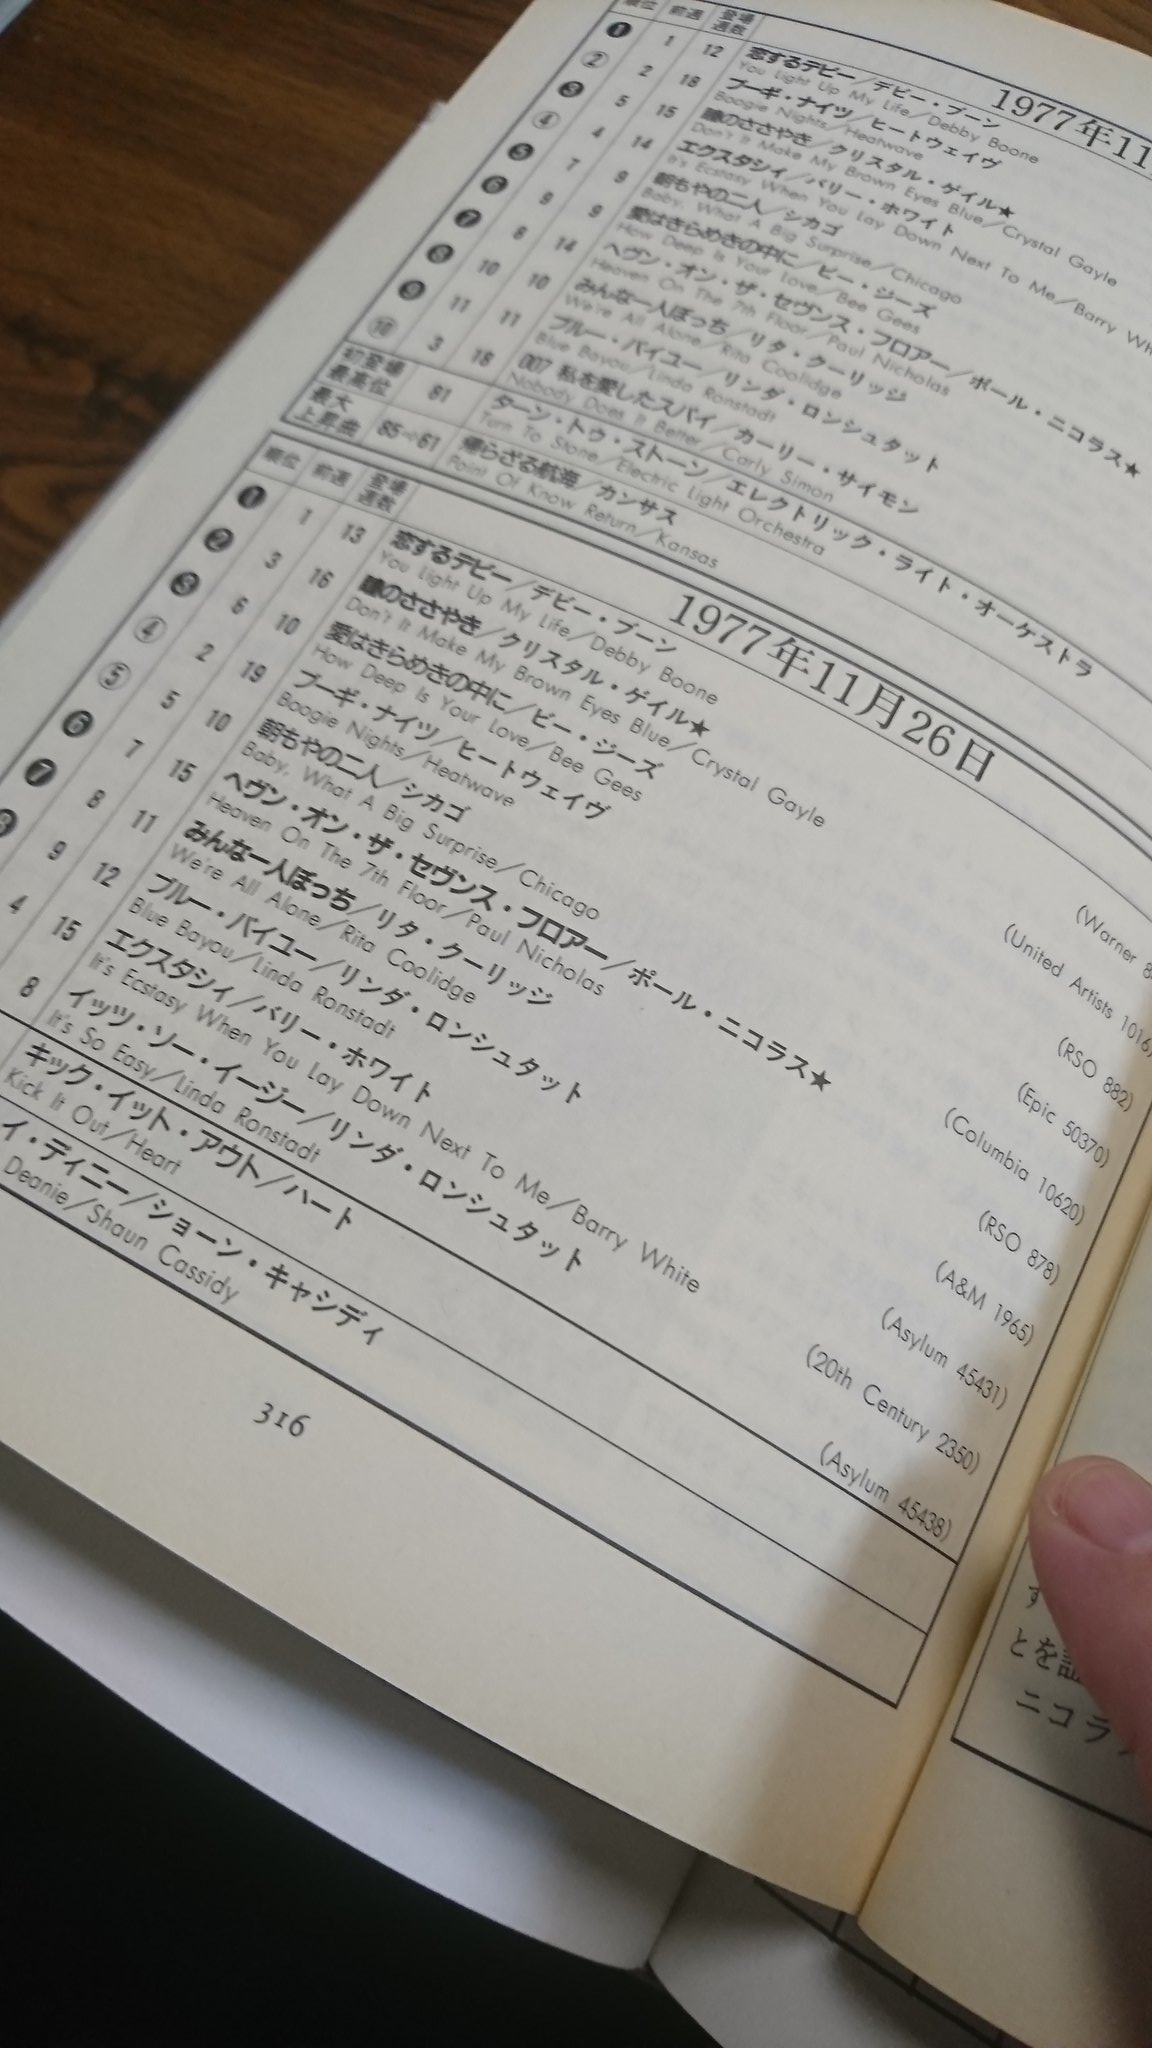 順位 前週 登場週数
1977年11
❶ 1 12 恋するデビー／デビー・ブーン
You Light Up My Life／Debby Boone
② 2 18 ブーギ・ナイツ／ヒートウェイヴ
Boogie Nights／Heatwave
❸ 5 15 瞳のささやき／クリスタル・ゲイル★
Don't It Make My Brown Eyes Blue／Crystal Gayle
④ 4 14 エクスタシィ／バリー・ホワイト
It's Ecstasy When You Lay Down Next To Me／Barry Wh
❺ 7 9 朝もやの二人／シカゴ
Baby, What A Big Surprise／Chicago
❻ 9 9 愛はきらめきの中に／ビー・ジーズ
How Deep Is Your Love／Bee Gees
❼ 8 14 ヘヴン・オン・ザ・セヴンス・フロアー／ポール・ニコラス★
Heaven On The 7th Floor／Paul Nicholas
❽ 10 10 みんな一人ぼっち／リタ・クーリッジ
We're All Alone／Rita Coolidge
❾ 11 11 ブルー・バイユー／リンダ・ロンシュタット
Blue Bayou／Linda Ronstadt
⑩ 3 18 007 私を愛したスパイ／カーリー・サイモン
Nobody Does It Better／Carly Simon
初登場最高位 81 ターン・トゥ・ストーン／エレクトリック・ライト・オーケストラ
Turn To Stone／Electric Light Orchestra
最大上昇曲 85→61 帰らざる航海／カンサス
Point Of Know Return／Kansas
順位 前週 登場週数
1977年11月26日
❶ 1 13 恋するデビー／デビー・ブーン
You Light Up My Life／Debby Boone (Warner 8
❷ 3 16 瞳のささやき／クリスタル・ゲイル★
Don't It Make My Brown Eyes Blue／Crystal Gayle (United Artists 1016)
❸ 6 10 愛はきらめきの中に／ビー・ジーズ
How Deep Is Your Love／Bee Gees (RSO 882)
④ 2 19 ブーギ・ナイツ／ヒートウェイヴ
Boogie Nights／Heatwave (Epic 50370)
⑤ 5 10 朝もやの二人／シカゴ
Baby, What A Big Surprise／Chicago (Columbia 10620)
❻ 7 15 ヘヴン・オン・ザ・セヴンス・フロアー／ポール・ニコラス★
Heaven On The 7th Floor／Paul Nicholas (RSO 878)
❼ 8 11 みんな一人ぼっち／リタ・クーリッジ
We're All Alone／Rita Coolidge (A&M 1965)
❽ 9 12 ブルー・バイユー／リンダ・ロンシュタット
Blue Bayou／Linda Ronstadt (Asylum 45431)
4 15 エクスタシィ／バリー・ホワイト
It's Ecstasy When You Lay Down Next To Me／Barry White (20th Century 2350)
8 イッツ・ソー・イージー／リンダ・ロンシュタット
It's So Easy／Linda Ronstadt (Asylum 45438)
キック・イット・アウト／ハート
Kick It Out／Heart
イ・ディニー／ショーン・キャシディ
Deanie／Shaun Cassidy
316
す
とを証
ニコラ